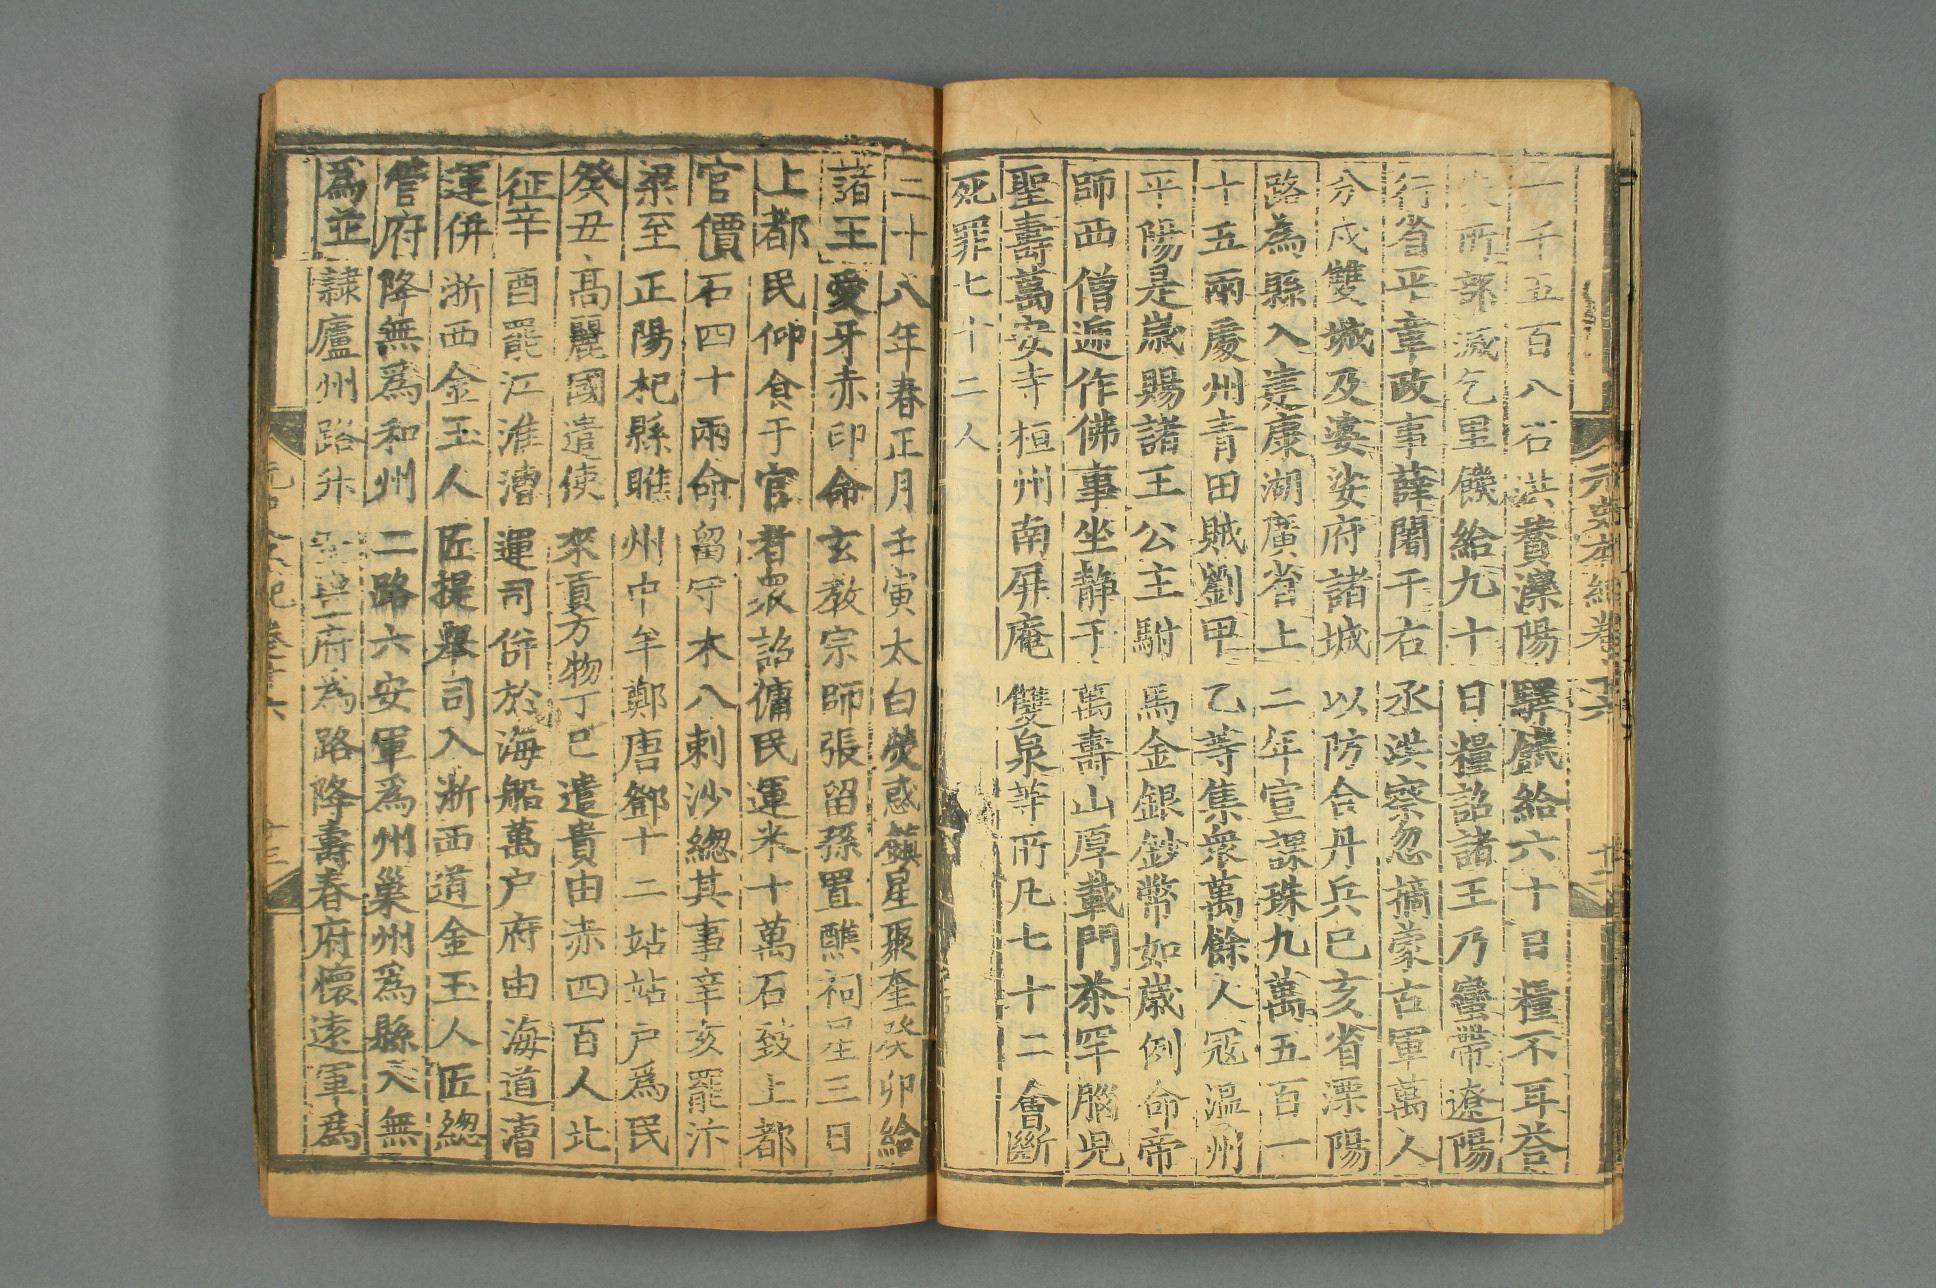 一千五百八石洪贊灤陽驛饑給六十日糧不耳荅
失所部滅乞里饑給九十日糧詔諸王乃蠻帶遼陽
行省平章政事薛闍干右丞洪察忽摘蒙古軍萬人
分戍雙城及婆娑府諸城以防合丹兵己亥省溧陽
路為縣入建康湖廣省上二年宣課珠九萬五百一
十五兩處州青田賊劉甲乙等集衆萬餘人寇溫州
平陽是歲賜諸王公主駙馬金銀鈔幣如歲例命帝
師西僧遞作佛事坐靜于萬壽山厚載門茶罕腦兒
聖壽萬安寺桓州南屏庵雙泉等所凡七十二會斷
死罪七十二人
二十八年春正月壬寅太白熒惑鎮星聚奎癸卯給
諸王愛牙赤印命玄教宗師張留孫置醮祠星三日
上都民仰食于官者衆詔傭民運米十萬石致上都
官價石四十兩命留守木八剌沙緫其事辛亥罷汴
梁至正陽杞縣睢州中牟鄭唐鄧十二站站戶為民
癸丑高麗國遣使來貢方物丁巳遣貴由赤四百人北
征辛酉罷江淮漕運司併於海船萬户府由海道漕
運併浙西金玉人匠提舉司入浙西道金玉人匠緫
管府降無爲和州二路六安軍爲州巢州爲縣入無
爲並隸廬州路升安豐府為路降壽春府懷遠軍爲